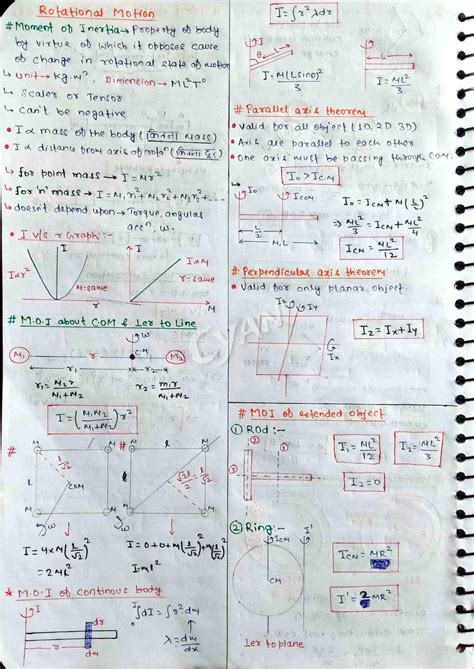 Rotational Motion
# Moment of Inertia → Property of body
by virtue of which it opposes cause
of change in rotational state of motion
↳ unit → Kg.m², Dimension → ML²T⁰
↳ Scaler or Tensor
↳ can't be negative
• I α mass of the body (कितना Mass)
• I α distance from axis of rotaⁿ (कितना दूर)
↳ for point mass → I = Mr²
↳ for 'n' mass → I = M₁r₁² + M₂r₂² + M₃r₃² + ...
↳ doesn't depend upon → Torque, angular
accⁿ, ω.
• I v/s r Graph :-
I
I
I α r²
M = same
r
I α M
r = same
M
# M.O.I about COM & ⊥er to Line
ω
M₁
r
C.M
M₂
r₁
r₂
r₁ = M₂r / M₁+M₂
r₂ = m₁r / M₁+M₂
I = (M₁M₂ / M₁+M₂) r²
#
M
M
l/√2
l
COM
M
M
ω
I = 4×M(l/√2)²
= 2Ml²
#
M
M
l
M
M
ω
★ M.O.I of continous body
I
dr
r
dm
∫dI = ∫r²dm
λ = dm/dr
I = ∫r²λdr
I
θ
L
I = M(Lsinθ)² / 3
I
L
I = ML²/3
# Parallel axis theorem
• Valid for all object (1D, 2D, 3D)
• Axis are parallel to each other
• One axis must be passing through C.O.M.
I₀ > I_CM
I₀
I_CM
L/2
M, L
I₀ = I_CM + M(L/2)²
⇒ ML²/3 = I_CM + ML²/4
I_CM = ML²/12
# Perpendicular axis theorem
• Valid for only planar object.
Iz
Iy
G
Ix
Iz = Ix + Iy
# MOI of extended object
① Rod :-
①
②
I₁ = ML²/12
I₂ = ML²/3
I₃ = 0
② Ring :-
I_CM
I'
CM
⊥er to plane
I_CM = MR²
I' = 2MR²